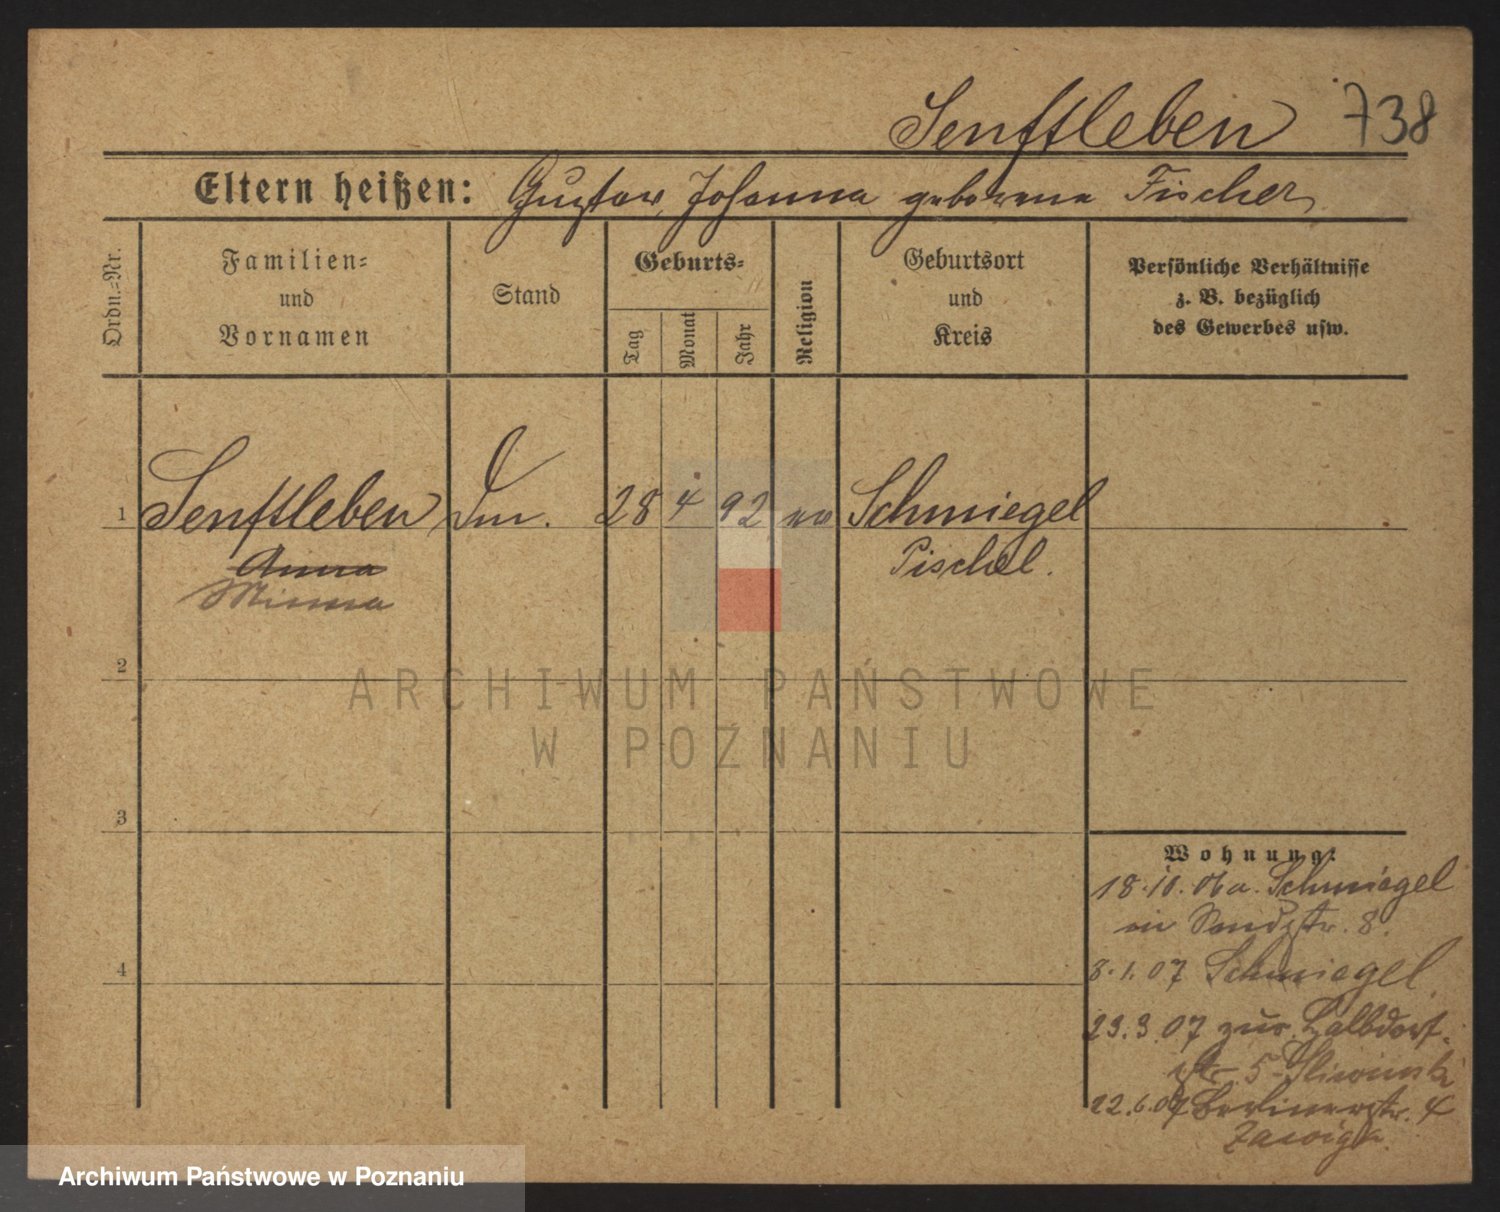 Senftleben 738
Eltern heißen: Gustav, Johanna geborene Fischer
Ordn.-Nr.
Familien-
und
Vornamen
Stand
Geburts-
Tag
Monat
Jahr
Religion
Geburtsort
und
Kreis
Persönliche Verhältnisse
z. B. bezüglich
des Gewerbes usw.
1 Senftleben 28 4 92 Schmiegel
Anna Pischel.
Minna
2
3
4
Wohnung:
18.10.06 a. Schmiegel
in Sandstr. 8.
8.1.07 Schmiegel
23.3.07 zur Halbdorf-
str. 5
22.6.07 Berlinerstr. 4
ARCHIWUM PAŃSTWOWE
W POZNANIU
Archiwum Państwowe w Poznaniu